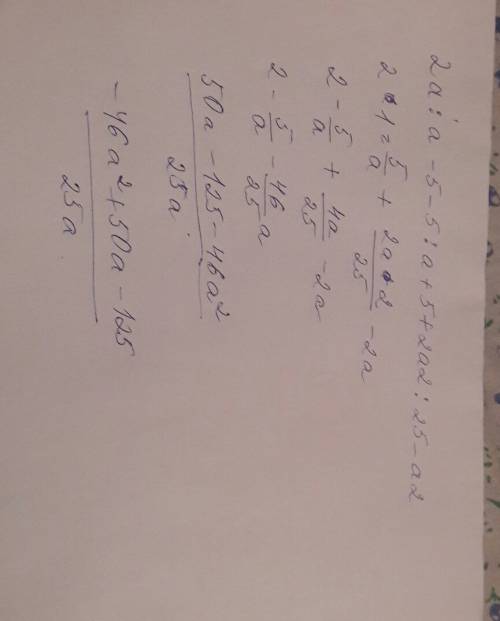 2a : a - 5 - 5 : a + 5 + 2a2 : 25 - a2
2 · 1 = 5/a + 2a·2/25 - 2a
2 - 5/a + 4a/25 - 2a
2 - 5/a - 46/25 a
50a - 125 - 46a²/25a
- 46a² + 50a - 125/25a